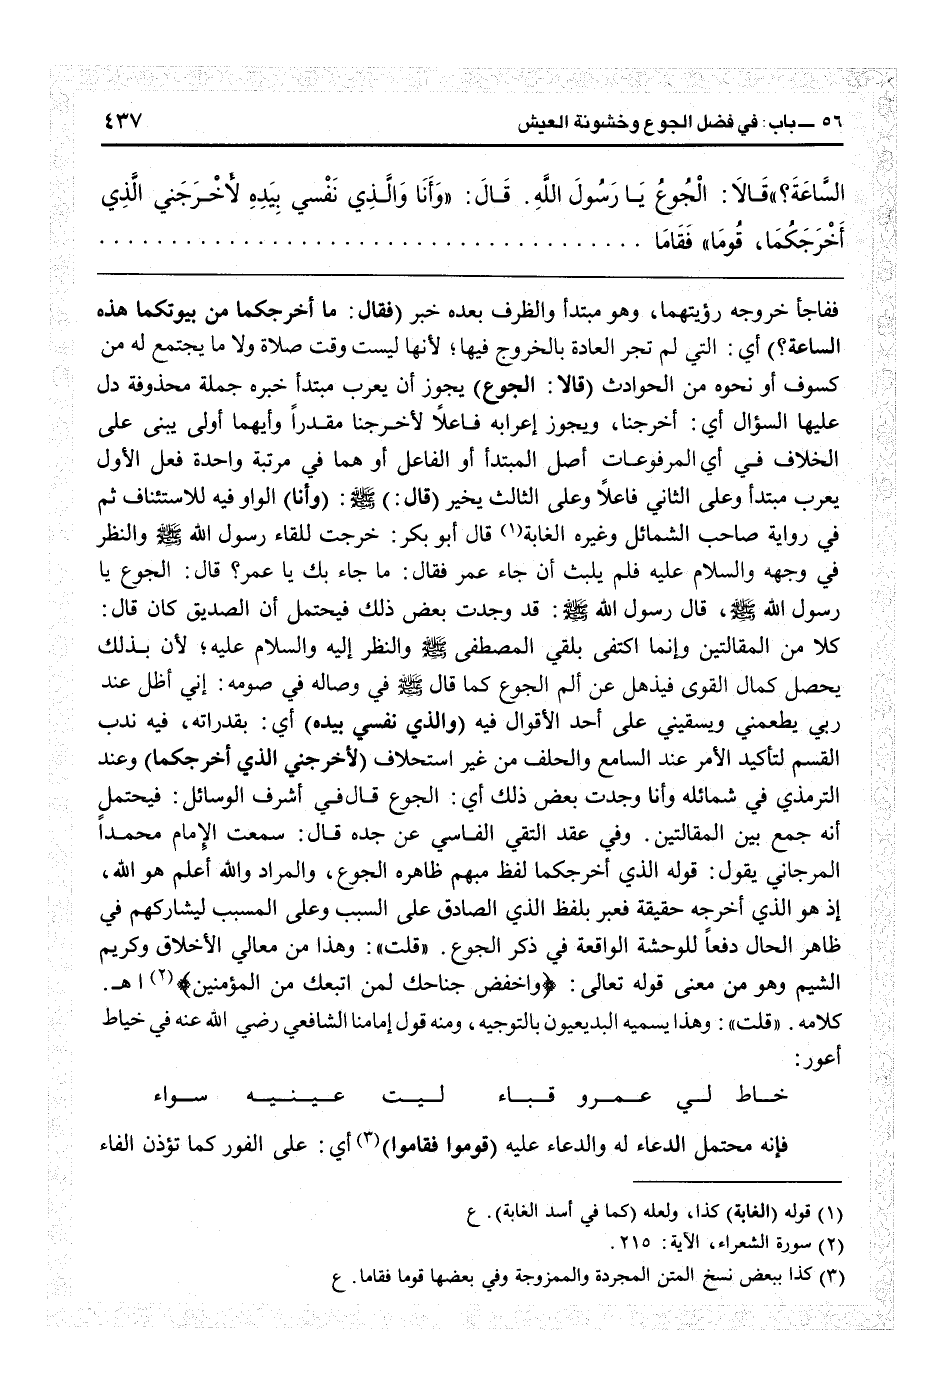 ٥٦ ـ باب: في فضل الجوع وخشونة العيش
٤٣٧
السَّاعَةَ؟» قَالَا: الْجُوعُ يَا رَسُولَ اللَّهِ. قَالَ: «وَأَنَا وَالَّذِي نَفْسي بِيَدِهِ لَأَخْرَجَني الَّذِي
أَخْرَجَكُمَا، قُومَا» فَقَامَا ......................................
ففاجأ خروجه رؤيتهما، وهو مبتدأ والظرف بعده خبر (فقال: ما أخرجكما من بيوتكما هذه
الساعة؟) أي: التي لم تجر العادة بالخروج فيها؛ لأنها ليست وقت صلاة ولا ما يجتمع له من
كسوف أو نحوه من الحوادث (قالا: الجوع) يجوز أن يعرب مبتدأ خبره جملة محذوفة دل
عليها السؤال أي: أخرجنا، ويجوز إعرابه فاعلاً لأخرجنا مقدراً وأيهما أولى يبنى على
الخلاف في أي المرفوعات أصل المبتدأ أو الفاعل أو هما في مرتبة واحدة فعل الأول
يعرب مبتدأ وعلى الثاني فاعلاً وعلى الثالث يخير (قال:) ﷺ: (وأنا) الواو فيه للاستئناف ثم
في رواية صاحب الشمائل وغيره الغابة(١) قال أبو بكر: خرجت للقاء رسول الله ﷺ والنظر
في وجهه والسلام عليه فلم يلبث أن جاء عمر فقال: ما جاء بك يا عمر؟ قال: الجوع يا
رسول الله ﷺ، قال رسول الله ﷺ: قد وجدت بعض ذلك فيحتمل أن الصديق كان قال:
كلا من المقالتين وإنما اكتفى بلقي المصطفى ﷺ والنظر إليه والسلام عليه؛ لأن بذلك
يحصل كمال القوى فيذهل عن ألم الجوع كما قال ﷺ في وصاله في صومه: إني أظل عند
ربي يطعمني ويسقيني على أحد الأقوال فيه (والذي نفسي بيده) أي: بقدراته، فيه ندب
القسم لتأكيد الأمر عند السامع والحلف من غير استحلاف (لأخرجني الذي أخرجكما) وعند
الترمذي في شمائله وأنا وجدت بعض ذلك أي: الجوع قال في أشرف الوسائل: فيحتمل
أنه جمع بين المقالتين. وفي عقد التقي الفاسي عن جده قال: سمعت الإمام محمداً
المرجاني يقول: قوله الذي أخرجكما لفظ مبهم ظاهره الجوع، والمراد والله أعلم هو الله،
إذ هو الذي أخرجه حقيقة فعبر بلفظ الذي الصادق على السبب وعلى المسبب ليشاركهم في
ظاهر الحال دفعاً للوحشة الواقعة في ذكر الجوع. «قلت»: وهذا من معالي الأخلاق وكريم
الشيم وهو من معنى قوله تعالى: ﴿واخفض جناحك لمن اتبعك من المؤمنين﴾(٢) ا هـ.
كلامه. «قلت»: وهذا يسميه البديعيون بالتوجيه، ومنه قول إمامنا الشافعي رضي الله عنه في خياط
أعور:
خاط لي عمرو قباء ليت عينيه سواء
فإنه محتمل الدعاء له والدعاء عليه (قوموا فقاموا)(٣) أي: على الفور كما تؤذن الفاء
(١) قوله (الغابة) كذا، ولعله (كما في أسد الغابة). ع
(٢) سورة الشعراء، الآية: ٢١٥.
(٣) كذا ببعض نسخ المتن المجردة والممزوجة وفي بعضها قوما فقاما. ع